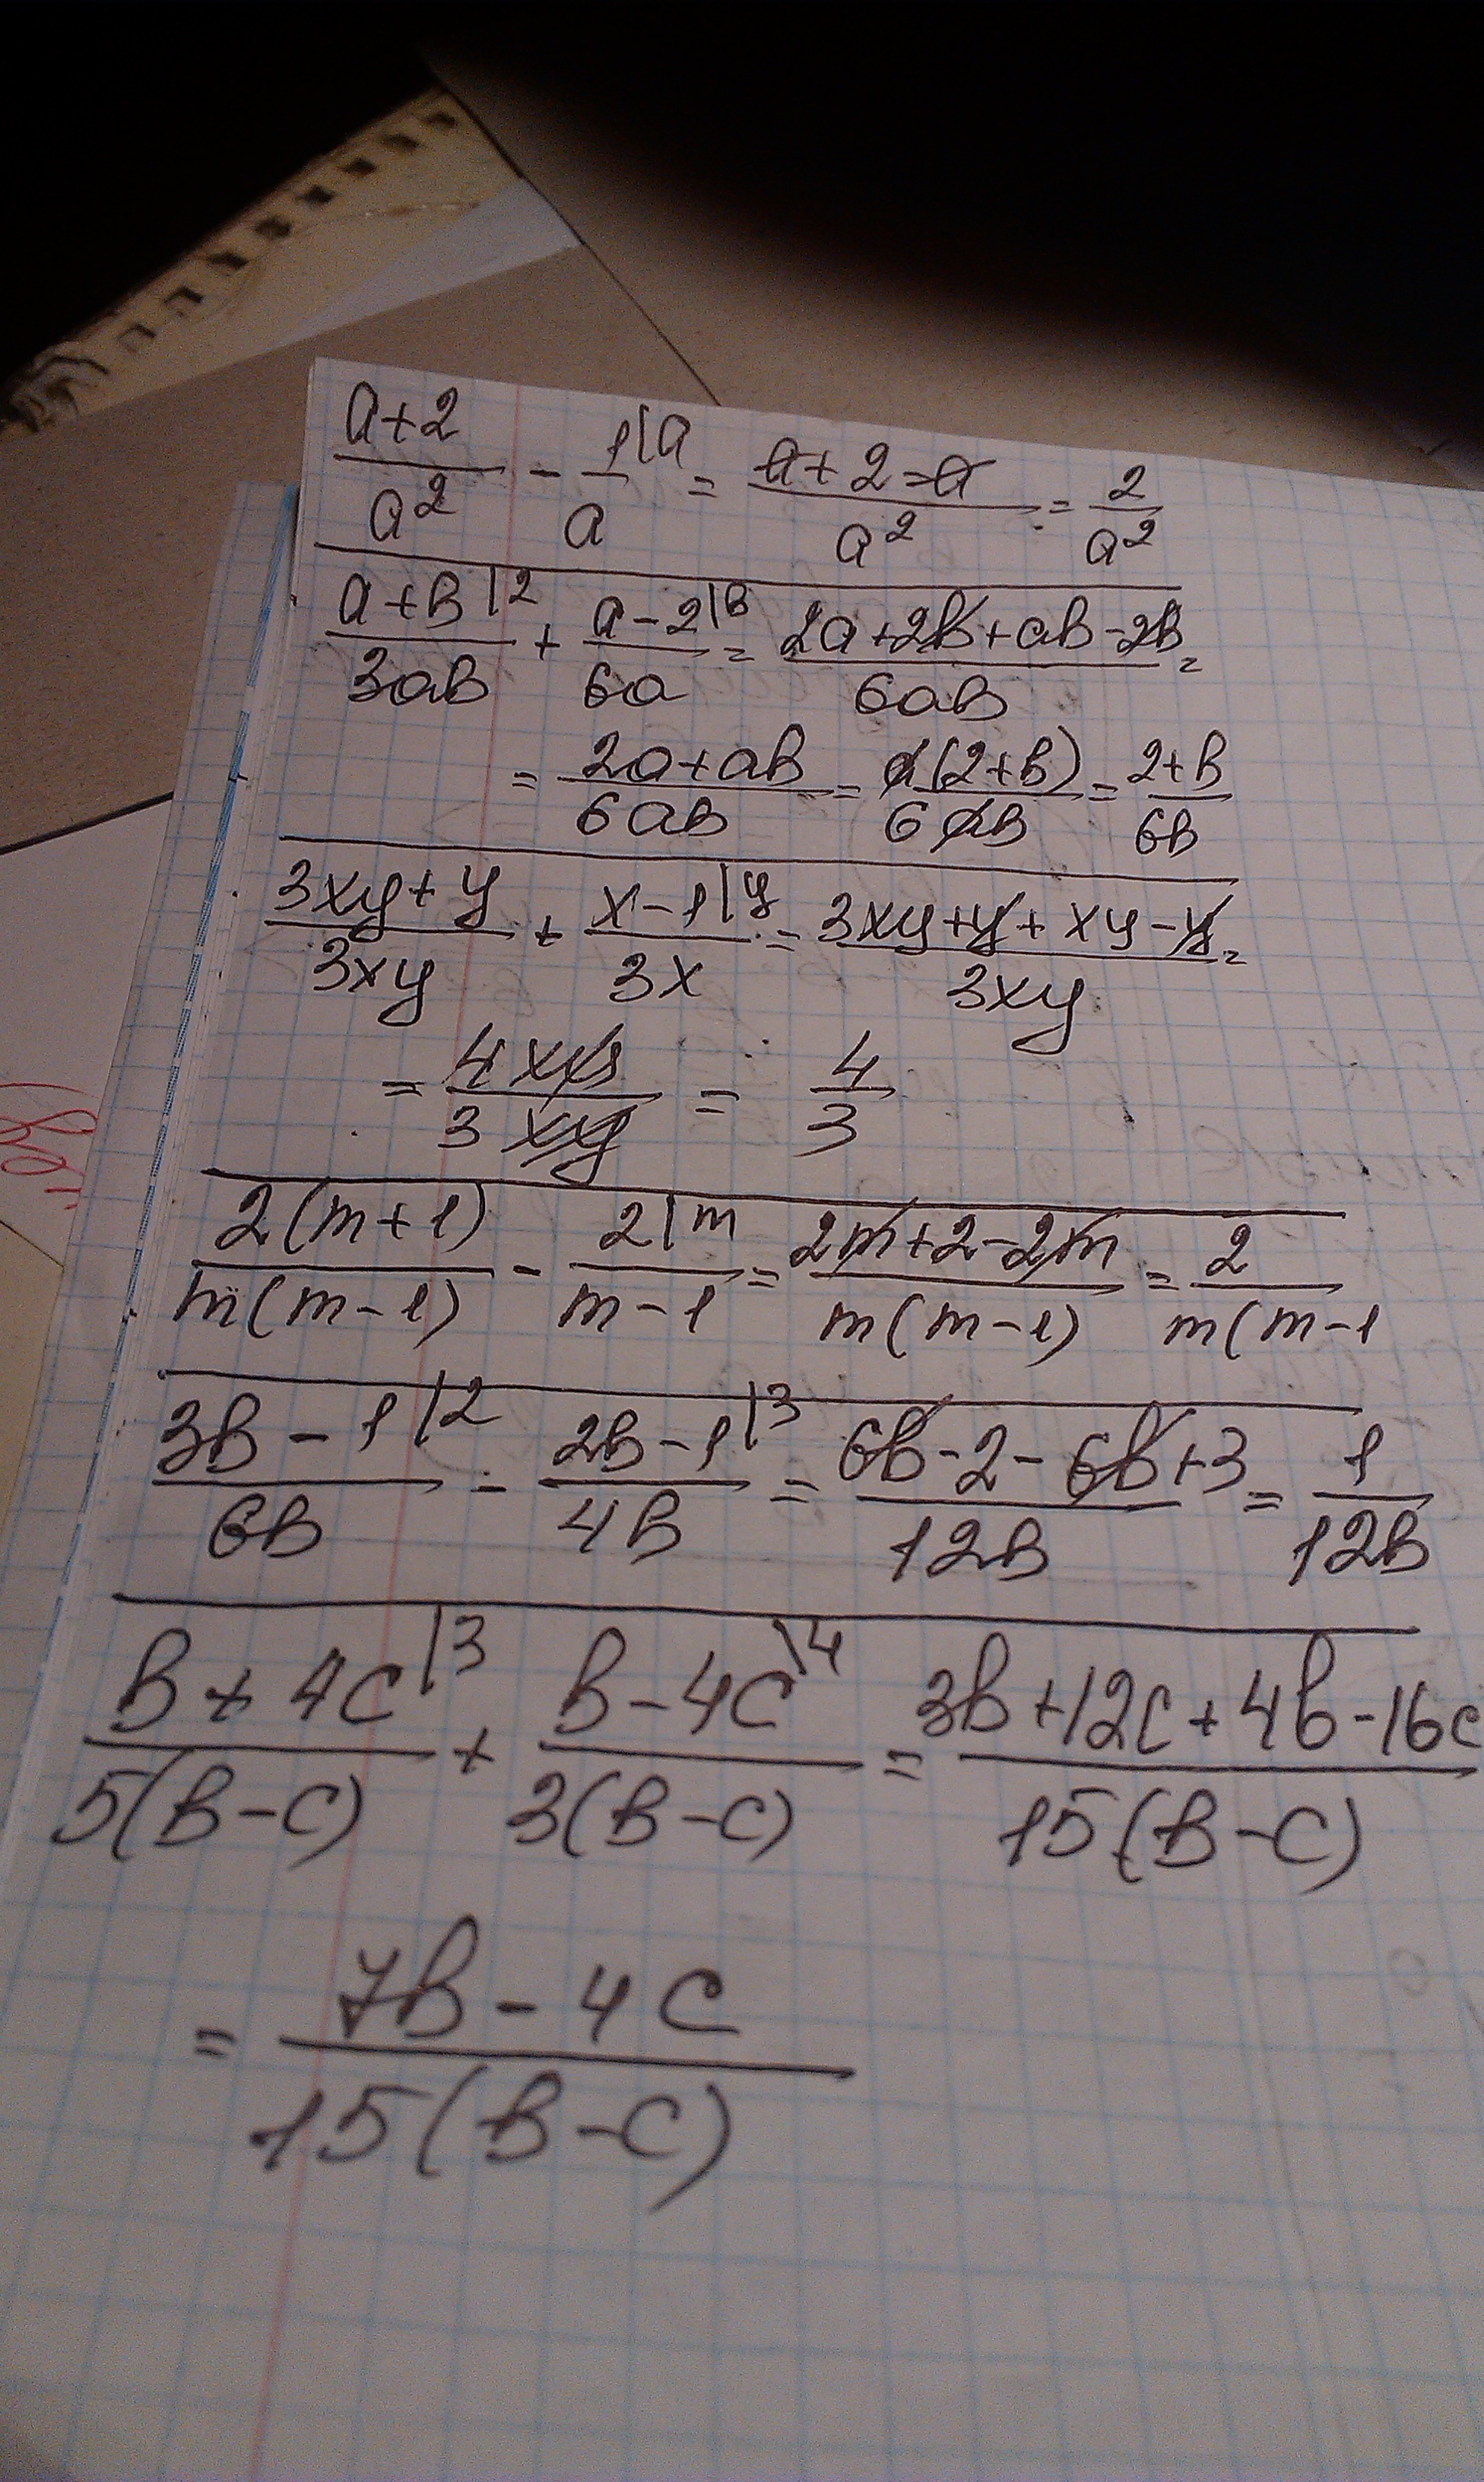 (a+2)/a² - 1\a/a = (a+2-a)/a² = 2/a²
(a+b|2)/3ab + (a-2|b)/6a = (2a+2b+ab-2b)/6ab =
= (2a+ab)/6ab = a(2+b)/6ab = (2+b)/6b
(3xy+y)/3xy + (x-1|y)/3x = (3xy+y+xy-y)/3xy =
= 4xy/3xy = 4/3
2(m+1)/m(m-1) - 2|m/(m-1) = (2m+2-2m)/m(m-1) = 2/m(m-1
(3b-1|2)/6b - (2b-1|3)/4b = (6b-2-6b+3)/12b = 1/12b
(b+4c|3)/5(b-c) + (b-4c\4)/3(b-c) = (3b+12c+4b-16c)/15(b-c)
= (7b-4c)/15(b-c)